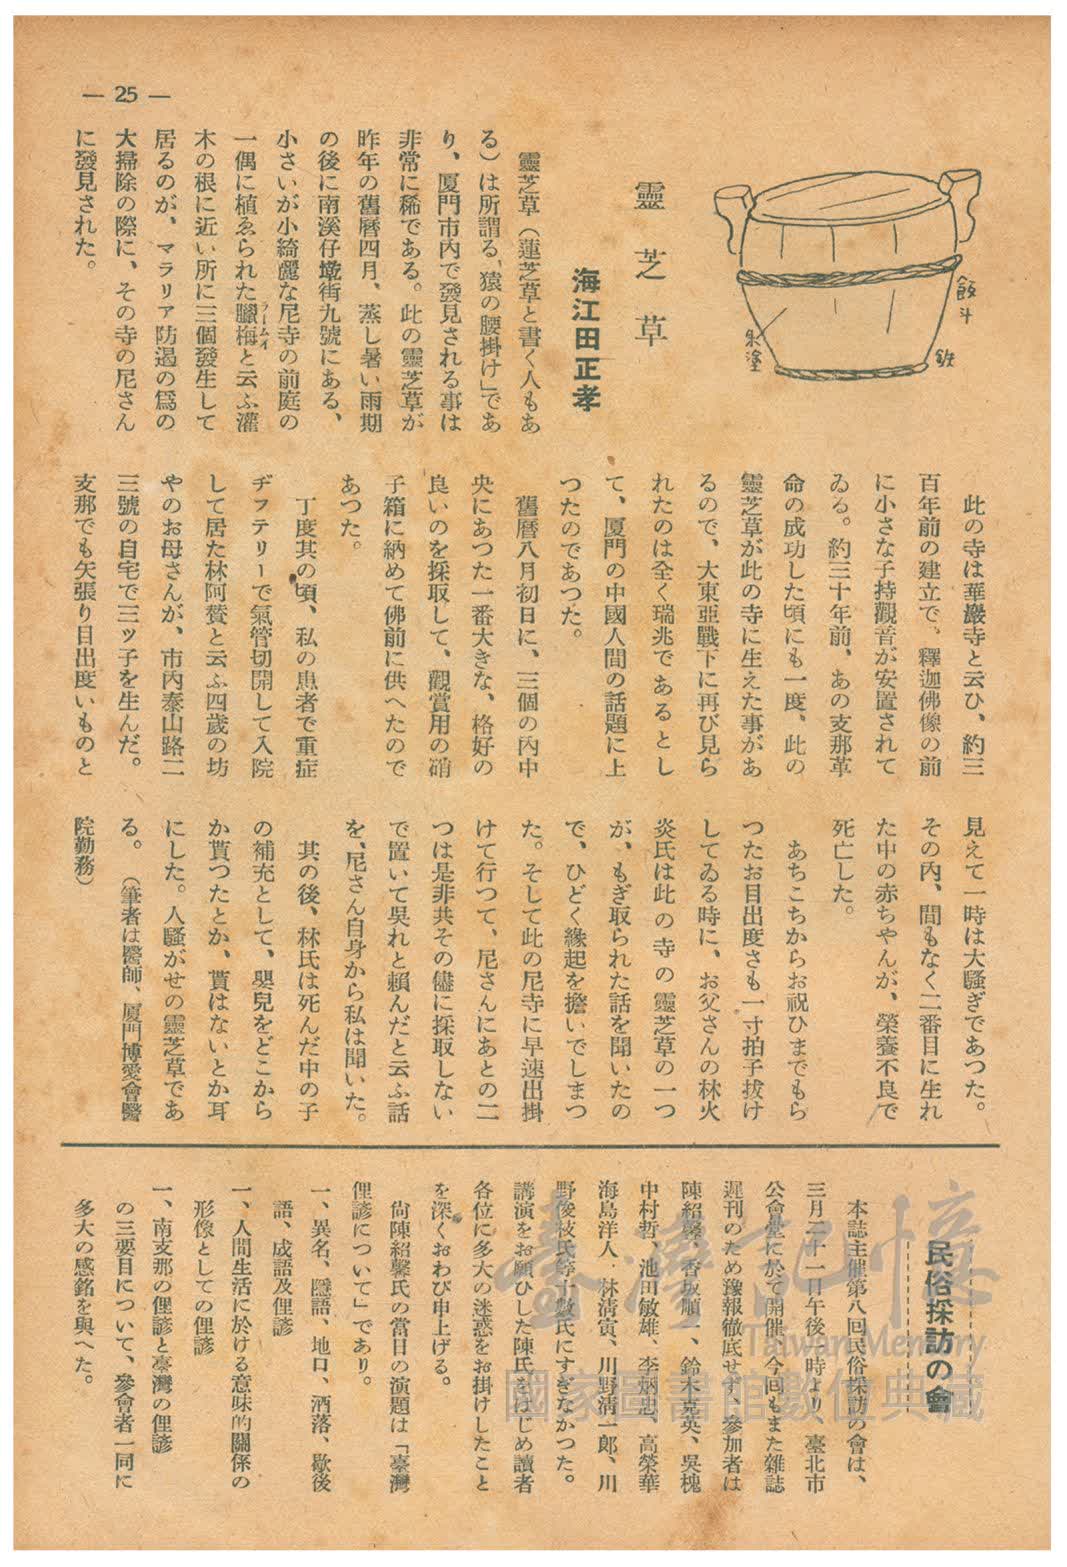 — 25 —
飯斗
鉄
朱塗
靈芝草
海江田正孝
靈芝草（蓮芝草と書く人もあ
る）は所謂る「猿の腰掛け」であ
り、厦門市內で發見される事は
非常に稀である。此の靈芝草が
昨年の舊曆四月、蒸し暑い雨期
の後に南溪仔墘街九號にある、
小さいが小綺麗な尼寺の前庭の
一偶に植ゑられた臘梅と云ふ灌
ラームイ
木の根に近い所に三個發生して
居るのが、マラリア防遏の爲の
大掃除の際に、その寺の尼さん
に發見された。
此の寺は華嚴寺と云ひ、約三
百年前の建立で、釋迦佛像の前
に小さな子持觀音が安置されて
ゐる。約三十年前、あの支那革
命の成功した頃にも一度、此の
靈芝草が此の寺に生えた事があ
るので、大東亞戰下に再び見ら
れたのは全く瑞兆であるとし
て、厦門の中國人間の話題に上
つたのであつた。
舊曆八月初日に、三個の內中
央にあつた一番大きな、格好の
良いのを採取して、觀賞用の硝
子箱に納めて佛前に供へたので
あつた。
丁度其の頃、私の患者で重症
ヂフテリーで氣管切開して入院
して居た林阿贊と云ふ四歲の坊
やのお母さんが、市內泰山路二
三號の自宅で三ツ子を生んだ。
支那でも矢張り目出度いものと
見えて一時は大騷ぎであつた。
その內、間もなく二番目に生れ
た中の赤ちやんが、榮養不良で
死亡した。
あちこちからお祝ひまでもら
つたお目出度さも一寸拍子拔け
してゐる時に、お父さんの林火
炎氏は此の寺の靈芝草の一つ
が、もぎ取られた話を聞いたの
で、ひどく緣起を擔いでしまつ
た。そして此の尼寺に早速出掛
けて行つて、尼さんにあとの二
つは是非共その儘に採取しない
で置いて吳れと賴んだと云ふ話
を、尼さん自身から私は聞いた。
其の後、林氏は死んだ中の子
の補充として、嬰兒をどこから
か貰つたとか、貰はないとか耳
にした。人騷がせの靈芝草であ
る。　（筆者は醫師、厦門博愛會醫
院勤務）
民俗採訪の會
本誌主催第八回民俗採訪の會は、
三月二十一日午後一時より、臺北市
公會堂に於て開催、今回もまた雜誌
遲刊のため豫報徹底せず、參加者は
陳紹馨、香坂順一、鈴木克英、吳槐
中村哲、池田敏雄、李炳忠、高榮華
海島洋人、林淸寅、川野淸一郞、川
野俊枝氏等十數氏にすぎなかつた。
講演をお願ひした陳氏をはじめ讀者
各位に多大の迷惑をお掛けしたこと
を深くおわび申上げる。
尙陳紹馨氏の當日の演題は「臺灣
俚諺について」であり。
一、異名、隱語、地口、洒落、歇後
語、成語及俚諺
一、人間生活に於ける意味的關係の
形像としての俚諺
一、南支那の俚諺と臺灣の俚諺
の三要目について、參會者一同に
多大の感銘を與へた。
臺灣記憶
Taiwan Memory
國家圖書館數位典藏